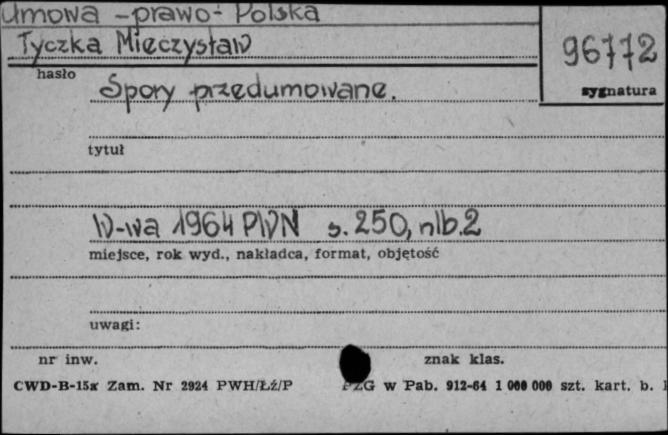 Umowa - prawo - Polska
Tyczka Mieczysław
96772
hasło
sygnatura
Spory przedumowane.
tytuł
W-wa 1964 PWN s. 250, nlb. 2
miejsce, rok wyd., nakładca, format, objętość
uwagi:
nr inw.
znak klas.
CWD-B-15x Zam. Nr 2924 PWH/Łź/P PZG w Pab. 912-64 1 000 000 szt. kart. b.